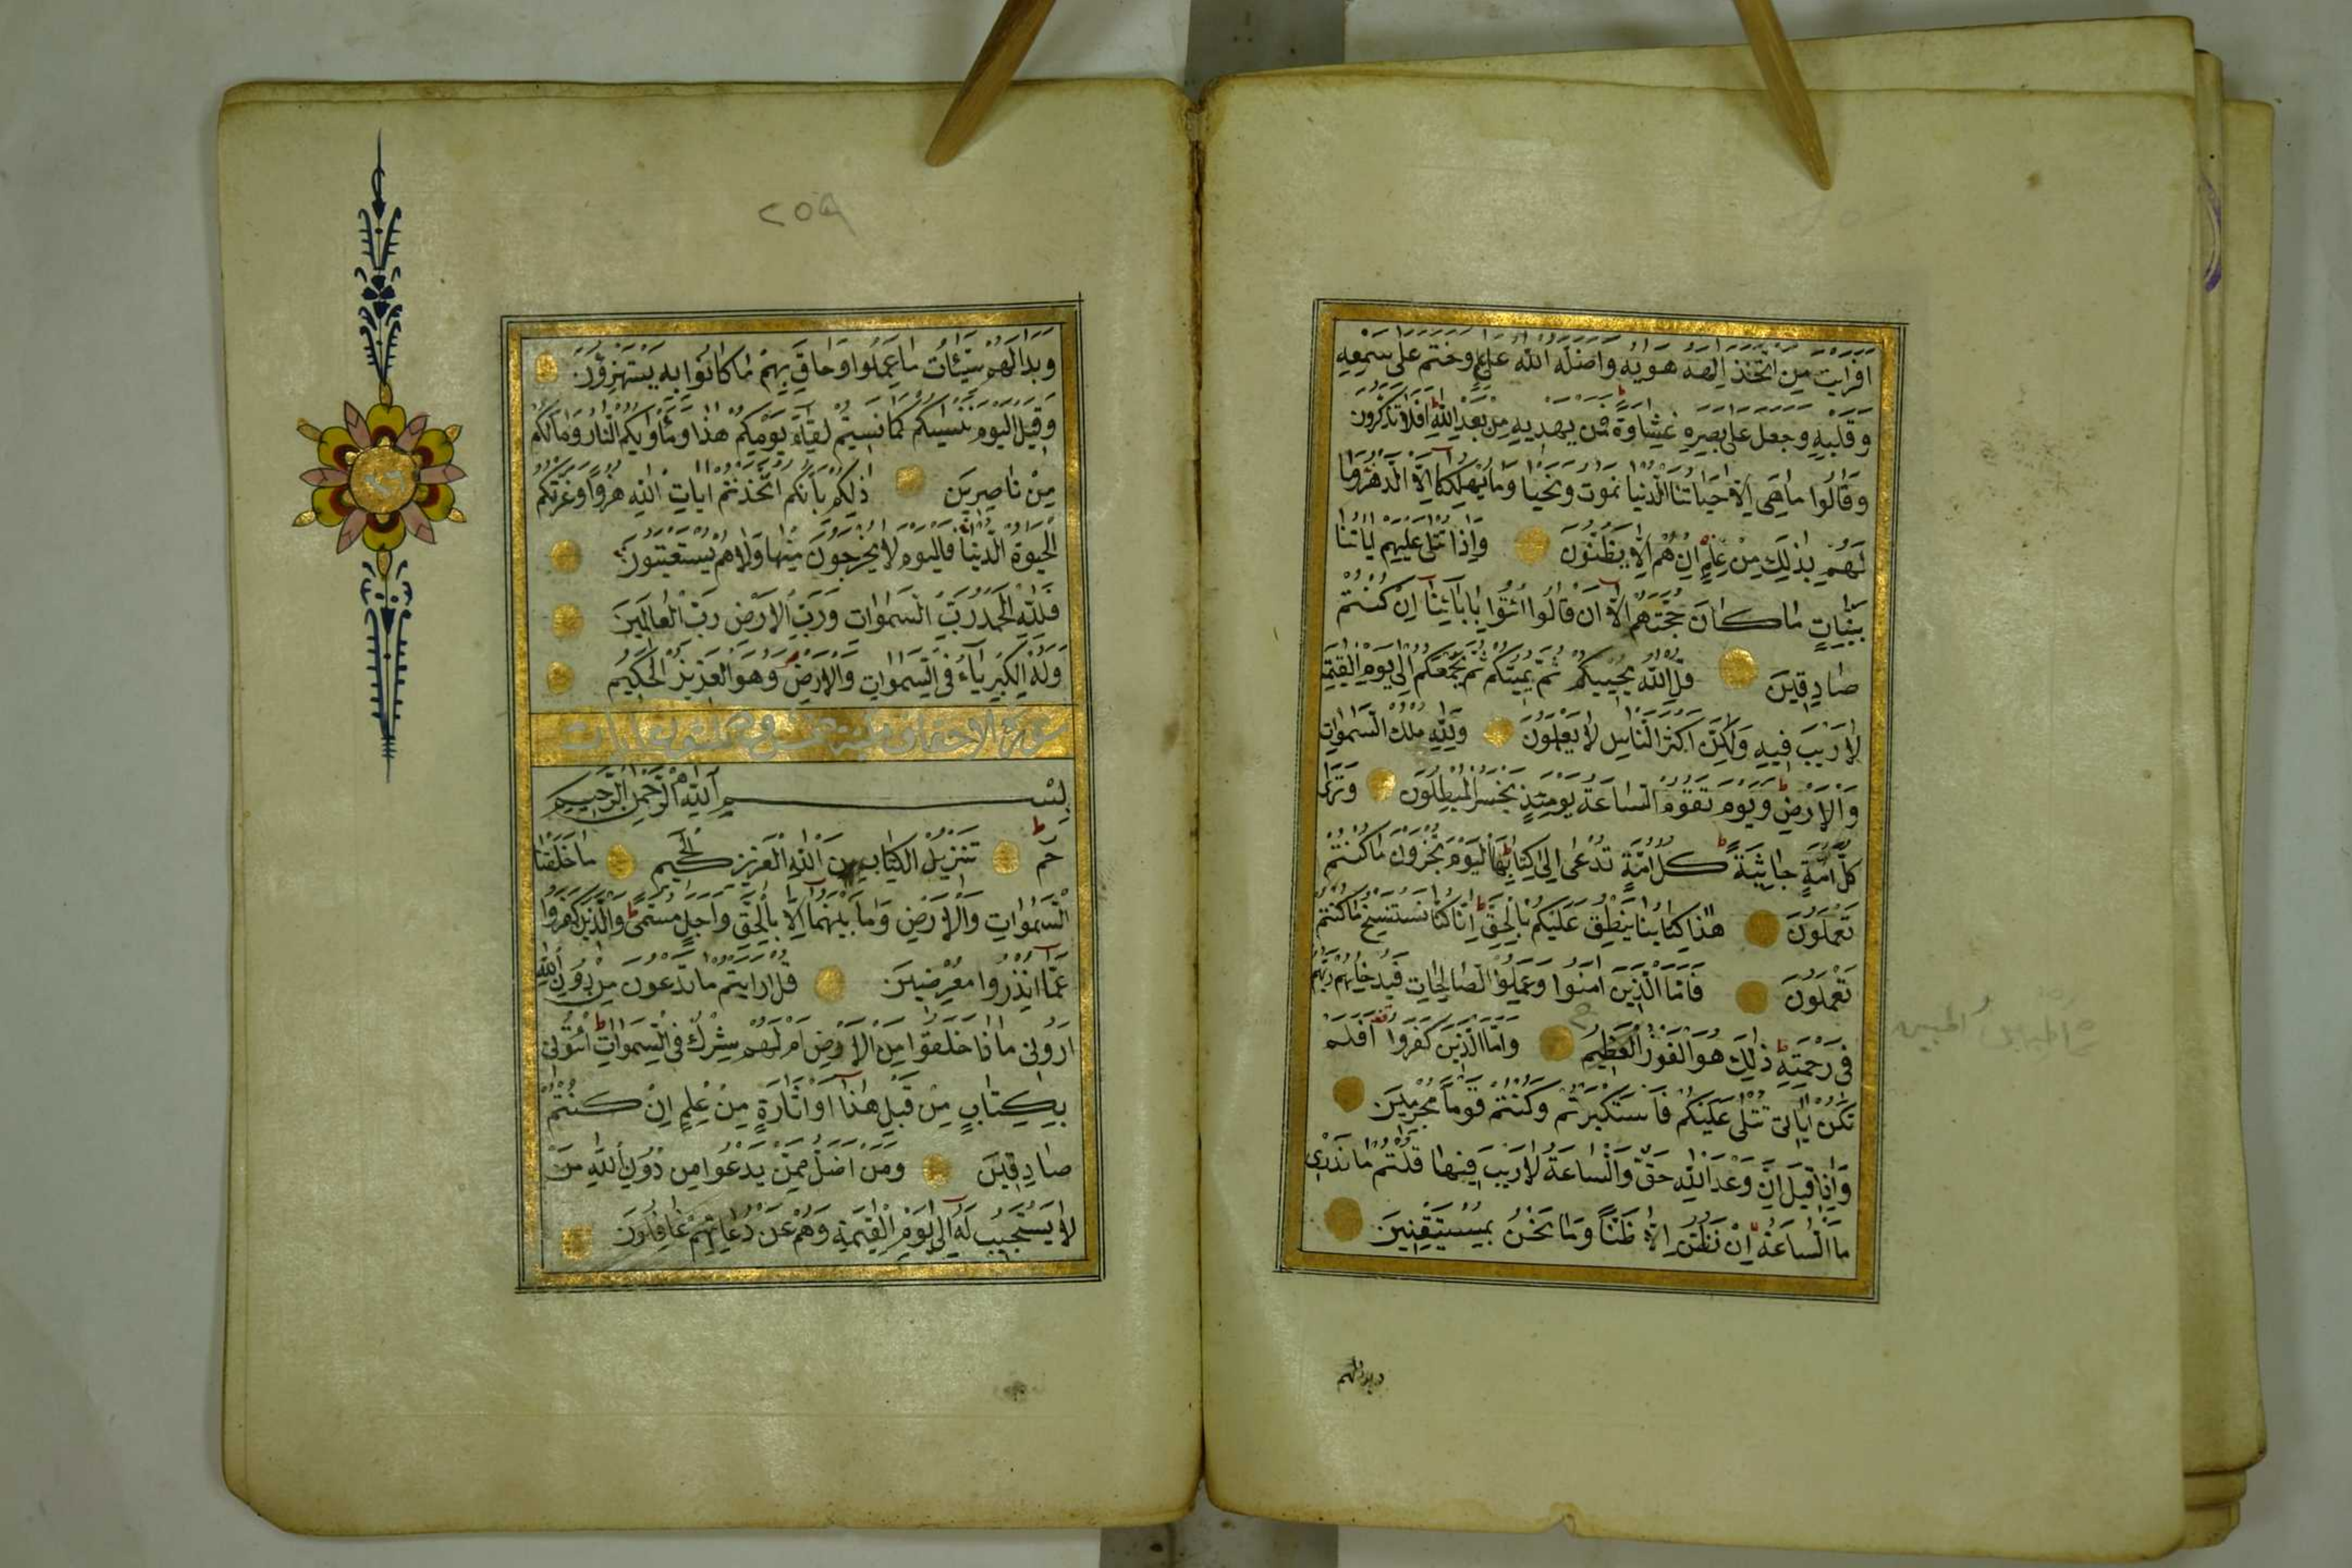 افرايت من اتخذ الهه هويه واضله الله على علم وختم على سمعه
وقلبه وجعل على بصره غشاوة فمن يهديه من بعد الله افلا تذكرون
وقالوا ما هى الا حياتنا الدنيا نموت ونحيا وما يهلكنا الا الدهر وما
لهم بذلك من علم ان هم الا يظنون واذا تتلى عليهم اياتنا
بينات ما كان حجتهم الا ان قالوا ائتوا بابائنا ان كنتم
صادقين قل الله يحييكم ثم يميتكم ثم يجمعكم الى يوم القيمة
لا ريب فيه ولكن اكثر الناس لا يعلمون ولله ملك السموات
والارض ويوم تقوم الساعة يومئذ يخسر المبطلون وترى
كل امة جاثية كل امة تدعى الى كتابها اليوم تجزون ما كنتم
تعملون هذا كتابنا ينطق عليكم بالحق انا كنا نستنسخ ما كنتم
تعملون فاما الذين امنوا وعملوا الصالحات فيدخلهم ربهم
فى رحمته ذلك هو الفوز العظيم واما الذين كفروا افلم
تكن اياتى تتلى عليكم فاستكبرتم وكنتم قوما مجرمين
واذا قيل ان وعد الله حق والساعة لا ريب فيها قلتم ما ندرى
ما الساعة ان نظن الا ظنا وما نحن بمستيقنين
وبدا لهم
٢٥٩
وبدا لهم سيئات ما عملوا وحاق بهم ما كانوا به يستهزؤن
وقيل اليوم ننسيكم كما نسيتم لقاء يومكم هذا ومأويكم النار وما لكم
من ناصرين ذلكم بانكم اتخذتم ايات الله هزوا وغرتكم
الحيوة الدنيا فاليوم لا يخرجون منها ولا هم يستعتبون
فلله الحمد رب السموات ورب الارض رب العالمين
وله الكبرياء فى السموات والارض وهو العزيز الحكيم
سورة الاحقاف مكية وهى خمس وثلثون ايات
بسم الله الرحمن الرحيم
حم تنزيل الكتاب من الله العزيز الحكيم ما خلقنا
السموات والارض وما بينهما الا بالحق واجل مسمى والذين كفروا
عما انذروا معرضين قل ارايتم ما تدعون من دون الله
ارونى ماذا خلقوا من الارض ام لهم شرك فى السموات ائتونى
بكتاب من قبل هذا او اثارة من علم ان كنتم
صادقين ومن اضل ممن يدعوا من دون الله من
لا يستجيب له الى يوم القيمة وهم عن دعائهم غافلون